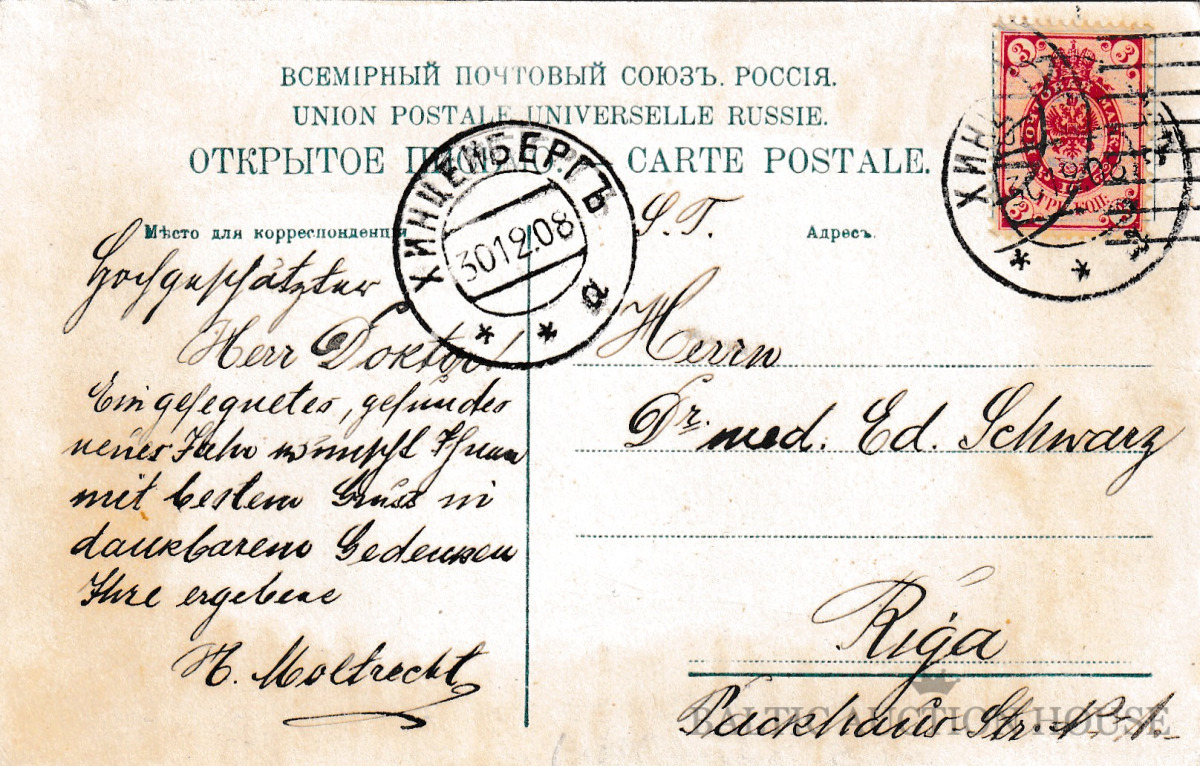 ВСЕМІРНЫЙ ПОЧТОВЫЙ СОЮЗЪ. РОССІЯ.
UNION POSTALE UNIVERSELLE RUSSIE.
ОТКРЫТОЕ CARTE POSTALE.
Мѣсто для корреспонденціи
Адресъ.
ХИНЦЕНБЕРГЪ
301208
а
3 3
3 3
S. T.
Hochgeschätzter
Herr Doktor!
Ein gesegnetes, gesundes
neues Jahr wünscht Ihnen
mit bestem Gruss in
dankbarem Gedenken
Ihre ergebene
H. Moltrecht
Herrn
Dr. med. Ed. Schwarz
Riga
Packhaus-Str. № 1.
BALTIC AUCTION HOUSE